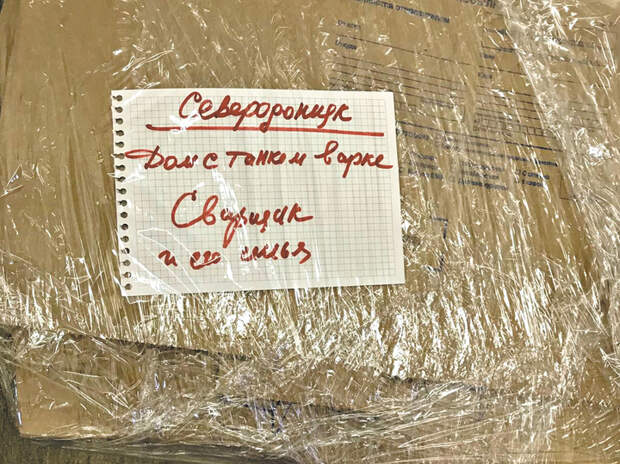 Северодонецк
Дом с танком в арке
Сварщик
и его семья